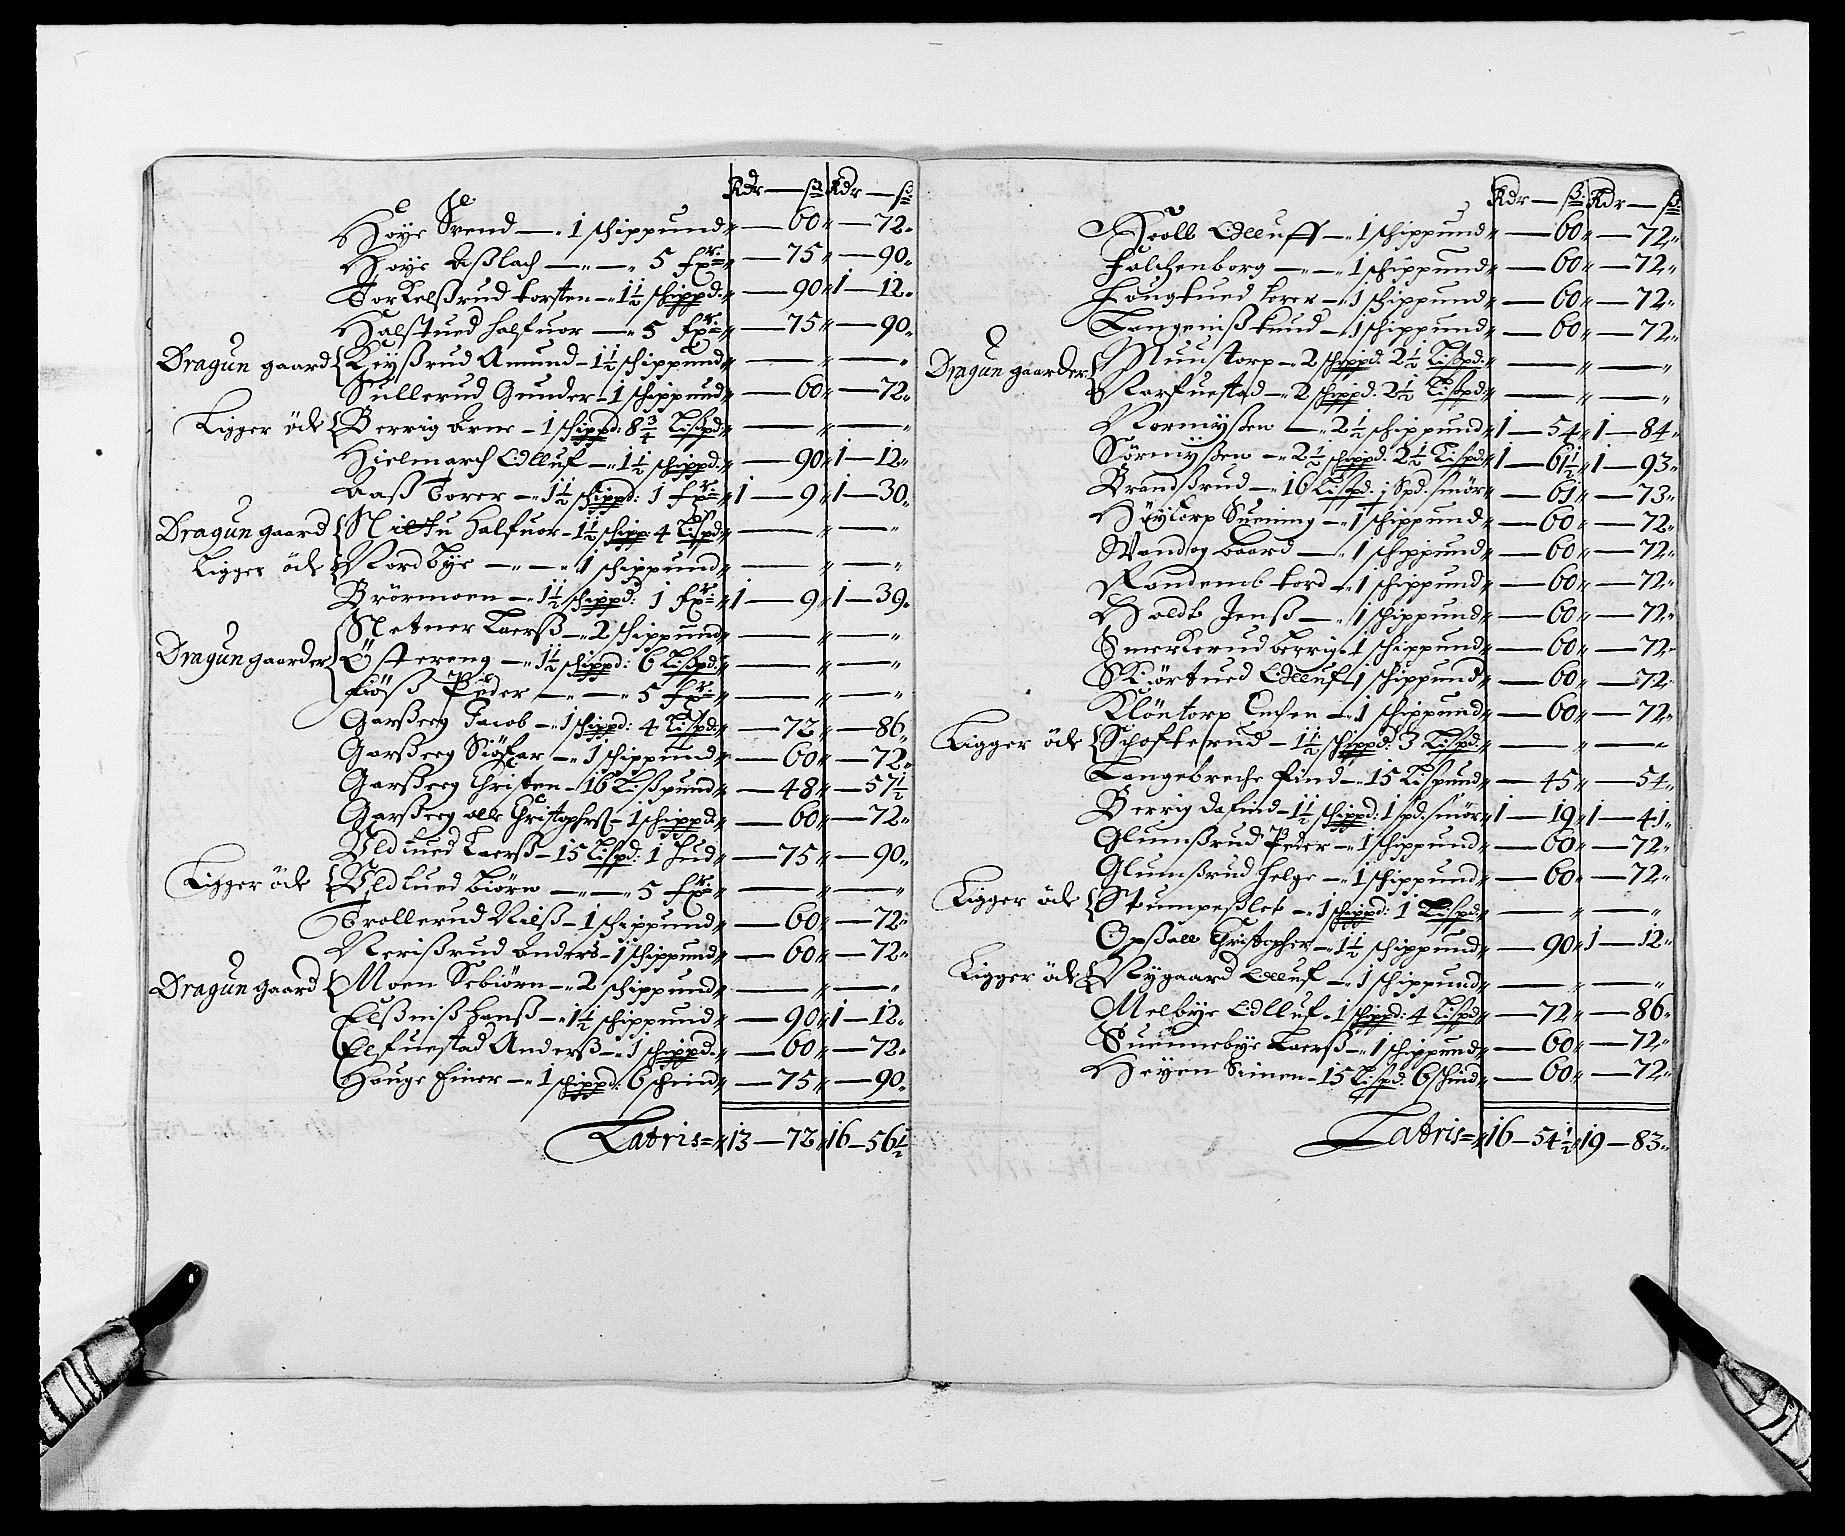 Rdr — ß Rdr — ß
Høye Svend — 1 schippund — 60 — 72
Høye Aßlach — — 5 fxr: — 75 — 90
Torkelßrud torsten — 1½ schippd: — 90 1 — 12
Halstued halfuor — 5 fxr: — 75 — 90
Dragun gaard { Keyßrud Amund — 1½ schippund — —
Sullerud Gunder — 1 schippund — 60 — 72
Ligger öde { Berrig Arne — 1 schippd: 8¾ Lißpd — —
Hielmarch Edluf — 1½ schippd — 90 1 — 12
Aaß Torer — 1½ schippd: 1 fxr: 1 — 9 1 — 30
Dragun gaard { halfuor — 1½ schipp: 4 Lispd — —
Ligger öde { Nordbye — — 1 schippund — —
Brörmoen — 1½ schippd: 1 fxr: 1 — 9 1 — 39
Sletner Laerß — 2 schippund — —
Dragun gaarder { Östereng — 1½ schippd: 6 Lißpd: — —
Fiöß Peder — — 5 fxr: — —
Garßeeg Jacob — 1 schippd: 4 Lispd: — 72 — 86
Garßeeg — 1 schippund — 60 — 72
Garßeeg Christen — 16 Lißpund — 48 — 57½
Garßeeg olle Christophrß — 1 schippd — 60 — 72
Uldtued Laerß — 15 Lispd: 1 hud — 75 — 90
Ligger öde { Uldtued Biörn — — 5 fxr: — —
Trollerud Nilß — 1 schippund — 60 — 72
Nerißrud Anders — 1 schippund — 60 — 72
Dragun gaard { Moen Sebiörn — 2 schippund — —
Elßniß Hanß — 1½ schippund — 90 1 — 12
Elfuestad Anderß — 1 schippd — 60 — 72
Houge Einer — 1 schippd: 6 schind — 75 — 90
Latris = 13 — 72 16 — 56½
Rdr — ß Rdr — ß
Kroll Edluff — 1 schippund — 60 — 72
Falchenborg — — 1 schippund — 60 — 72
Torer — 1 schippund — 60 — 72
Langeniß knud — 1 schippund — 60 — 72
Muustorp — 2 schippd: 2½ Lißpd: — —
Dragun gaarder { Narfuestad — 2 schippd: 2½ Lißpd — —
Normyßen — 2½ schippund 1 — 54 1 — 84
Sörmyßen — 2½ schippd: 2½ Lispd 1 — 61½ 1 — 93
Brandßrud — 16 Lispd: 1 Spd. smör — 61 — 73
Höytorp Suening — 1 schippund — 60 — 72
Wandog Baard — 1 schippund — 60 — 72
Randemb tord — 1 schippund — 60 — 72
Holdt Jenß — 1 schippund — 60 — 72
Smerkerud Berrig 1 schippund — 60 — 72
Skiörtued Edluf — 1 schippund — 60 — 72
Klöntorp — 1 schippund — 60 — 72
Ligger öde { Schofterud — 1½ schippd: 3 Lispd: — —
Langebreche find — 15 Lispund — 45 — 54
Berrig Dafind — 1½ schippd: 1 spd: smör 1 — 19 1 — 41
Glumßrud Peder — 1 schippund — 60 — 72
Glumßrud helge — 1 schippund — 60 — 72
Ligger öde { Stumpeßlet — 1 schippd: 1 Lispd: — —
Opßall Christopher — 1½ schippund — 90 1 — 12
Ligger öde { Nygaard Edluf — 1 schippund — —
Melbye Edluf — 1 schippd: 4 Lispd — 72 — 86
Suennebye Laerß — 1 schippund — 60 — 72
Heyen Simen — 15 Lispd: 6 schind — 60 — 72
Latris = 16 — 54½ 19 — 83